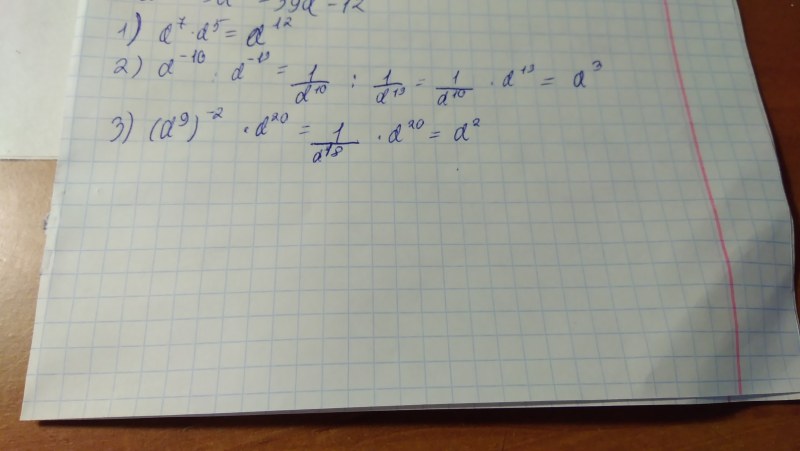 - 39a - 12
1) a⁷ · a⁵ = a¹²
2) a⁻¹⁰ : a⁻¹³ = 1/a¹⁰ : 1/a¹³ = 1/a¹⁰ · a¹³ = a³
3) (a⁹)⁻² · a²⁰ = 1/a¹⁸ · a²⁰ = a²